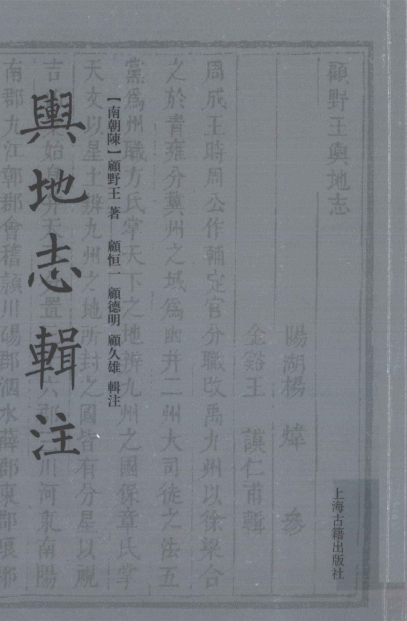 輿地志輯注
【南朝陳】顧野王 著 顧恒一 顧德明 顧久雄 輯注
上海古籍出版社
顧野王輿地志
陽湖楊 煒 參
金谿王 謨仁甫輯
周成王時周公作輔定官分職改禹九州以徐梁合
之於青雍分冀州之域爲幽并二州大司徒之法五
黨爲州職方氏掌天下之地辨九州之國保章氏掌
天文以星土辨九州之地所封之國皆有分星以視
吉 始 置 六郡 川河東南陽
南郡九江鄣郡會稽潁川碭郡泗水薛郡東郡琅邪